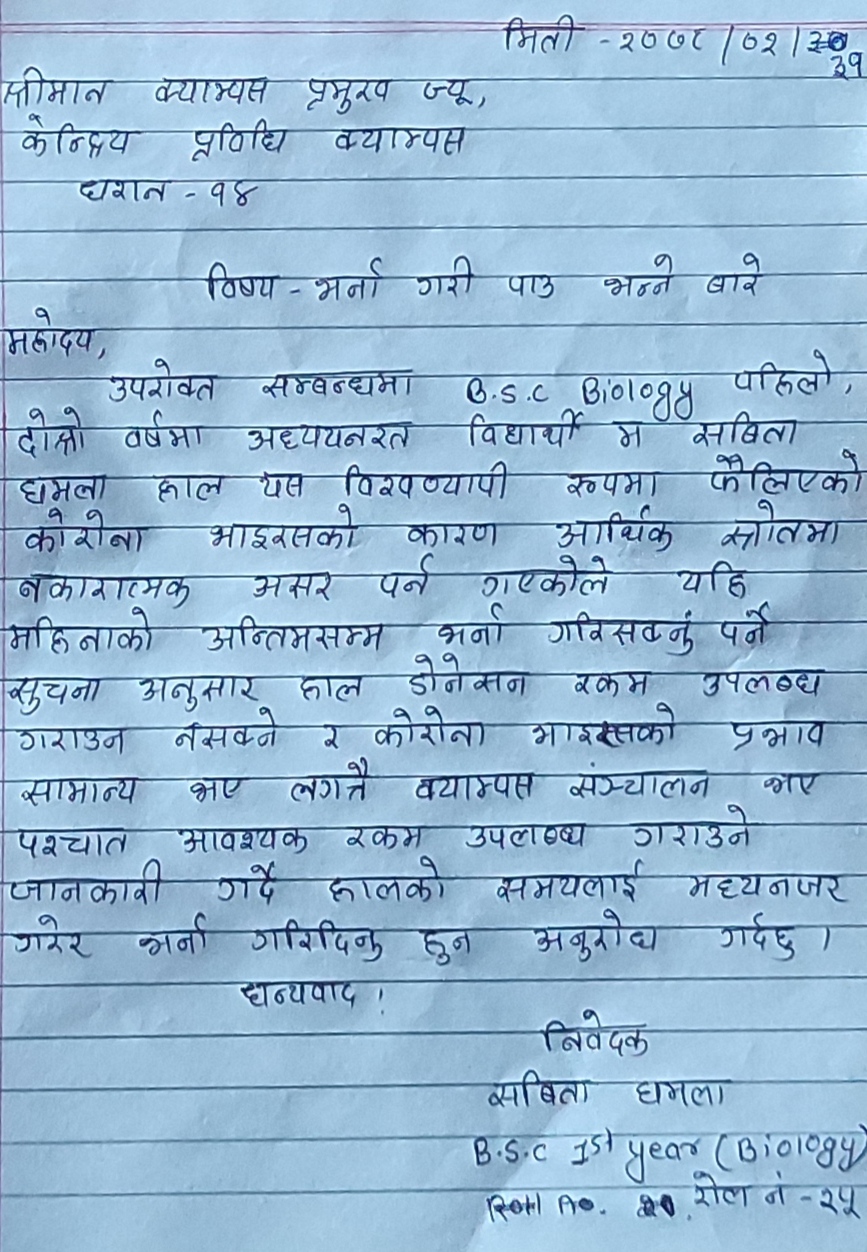 मिती - २०७८ / ०२ / ३१
श्रीमान क्याम्पस प्रमुख ज्यू,
केन्द्रिय प्रविधि क्याम्पस
धरान - १४
विषय - भर्ना गरी पाउ भन्ने बारे
महोदय,
उपरोक्त सम्बन्धमा B.S.C Biology पहिलो,
दोस्रो वर्षमा अध्ययनरत विद्यार्थी म सबिता
धमला हाल यस विश्वव्यापी रूपमा फैलिएको
कोरोना भाइरसको कारण आर्थिक स्रोतमा
नकारात्मक असर पर्न गएकोले यहि
महिनाको अन्तिमसम्म भर्ना गरिसक्नुं पर्ने
सुचना अनुसार हाल डोनेसन रकम उपलब्ध
गराउन नसक्ने र कोरोना भाइरसको प्रभाव
सामान्य भए लगत्तै क्याम्पस संञ्चालन भए
पश्चात आवश्यक रकम उपलब्ध गराउने
जानकारी गर्दै हालको समयलाई मध्यनजर
गरेर भर्ना गरिदिनु हुन अनुरोध गर्दछु ।
धन्यवाद !
निवेदक
सबिता धमला
B.S.C 1st year (Biology)
Roll No. रोल नं - २५